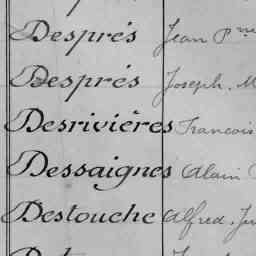 Després Jean Pre
Després Joseph. M
Desrivières Francois
Dessaignes Alain
Destouche Alfred. Ju